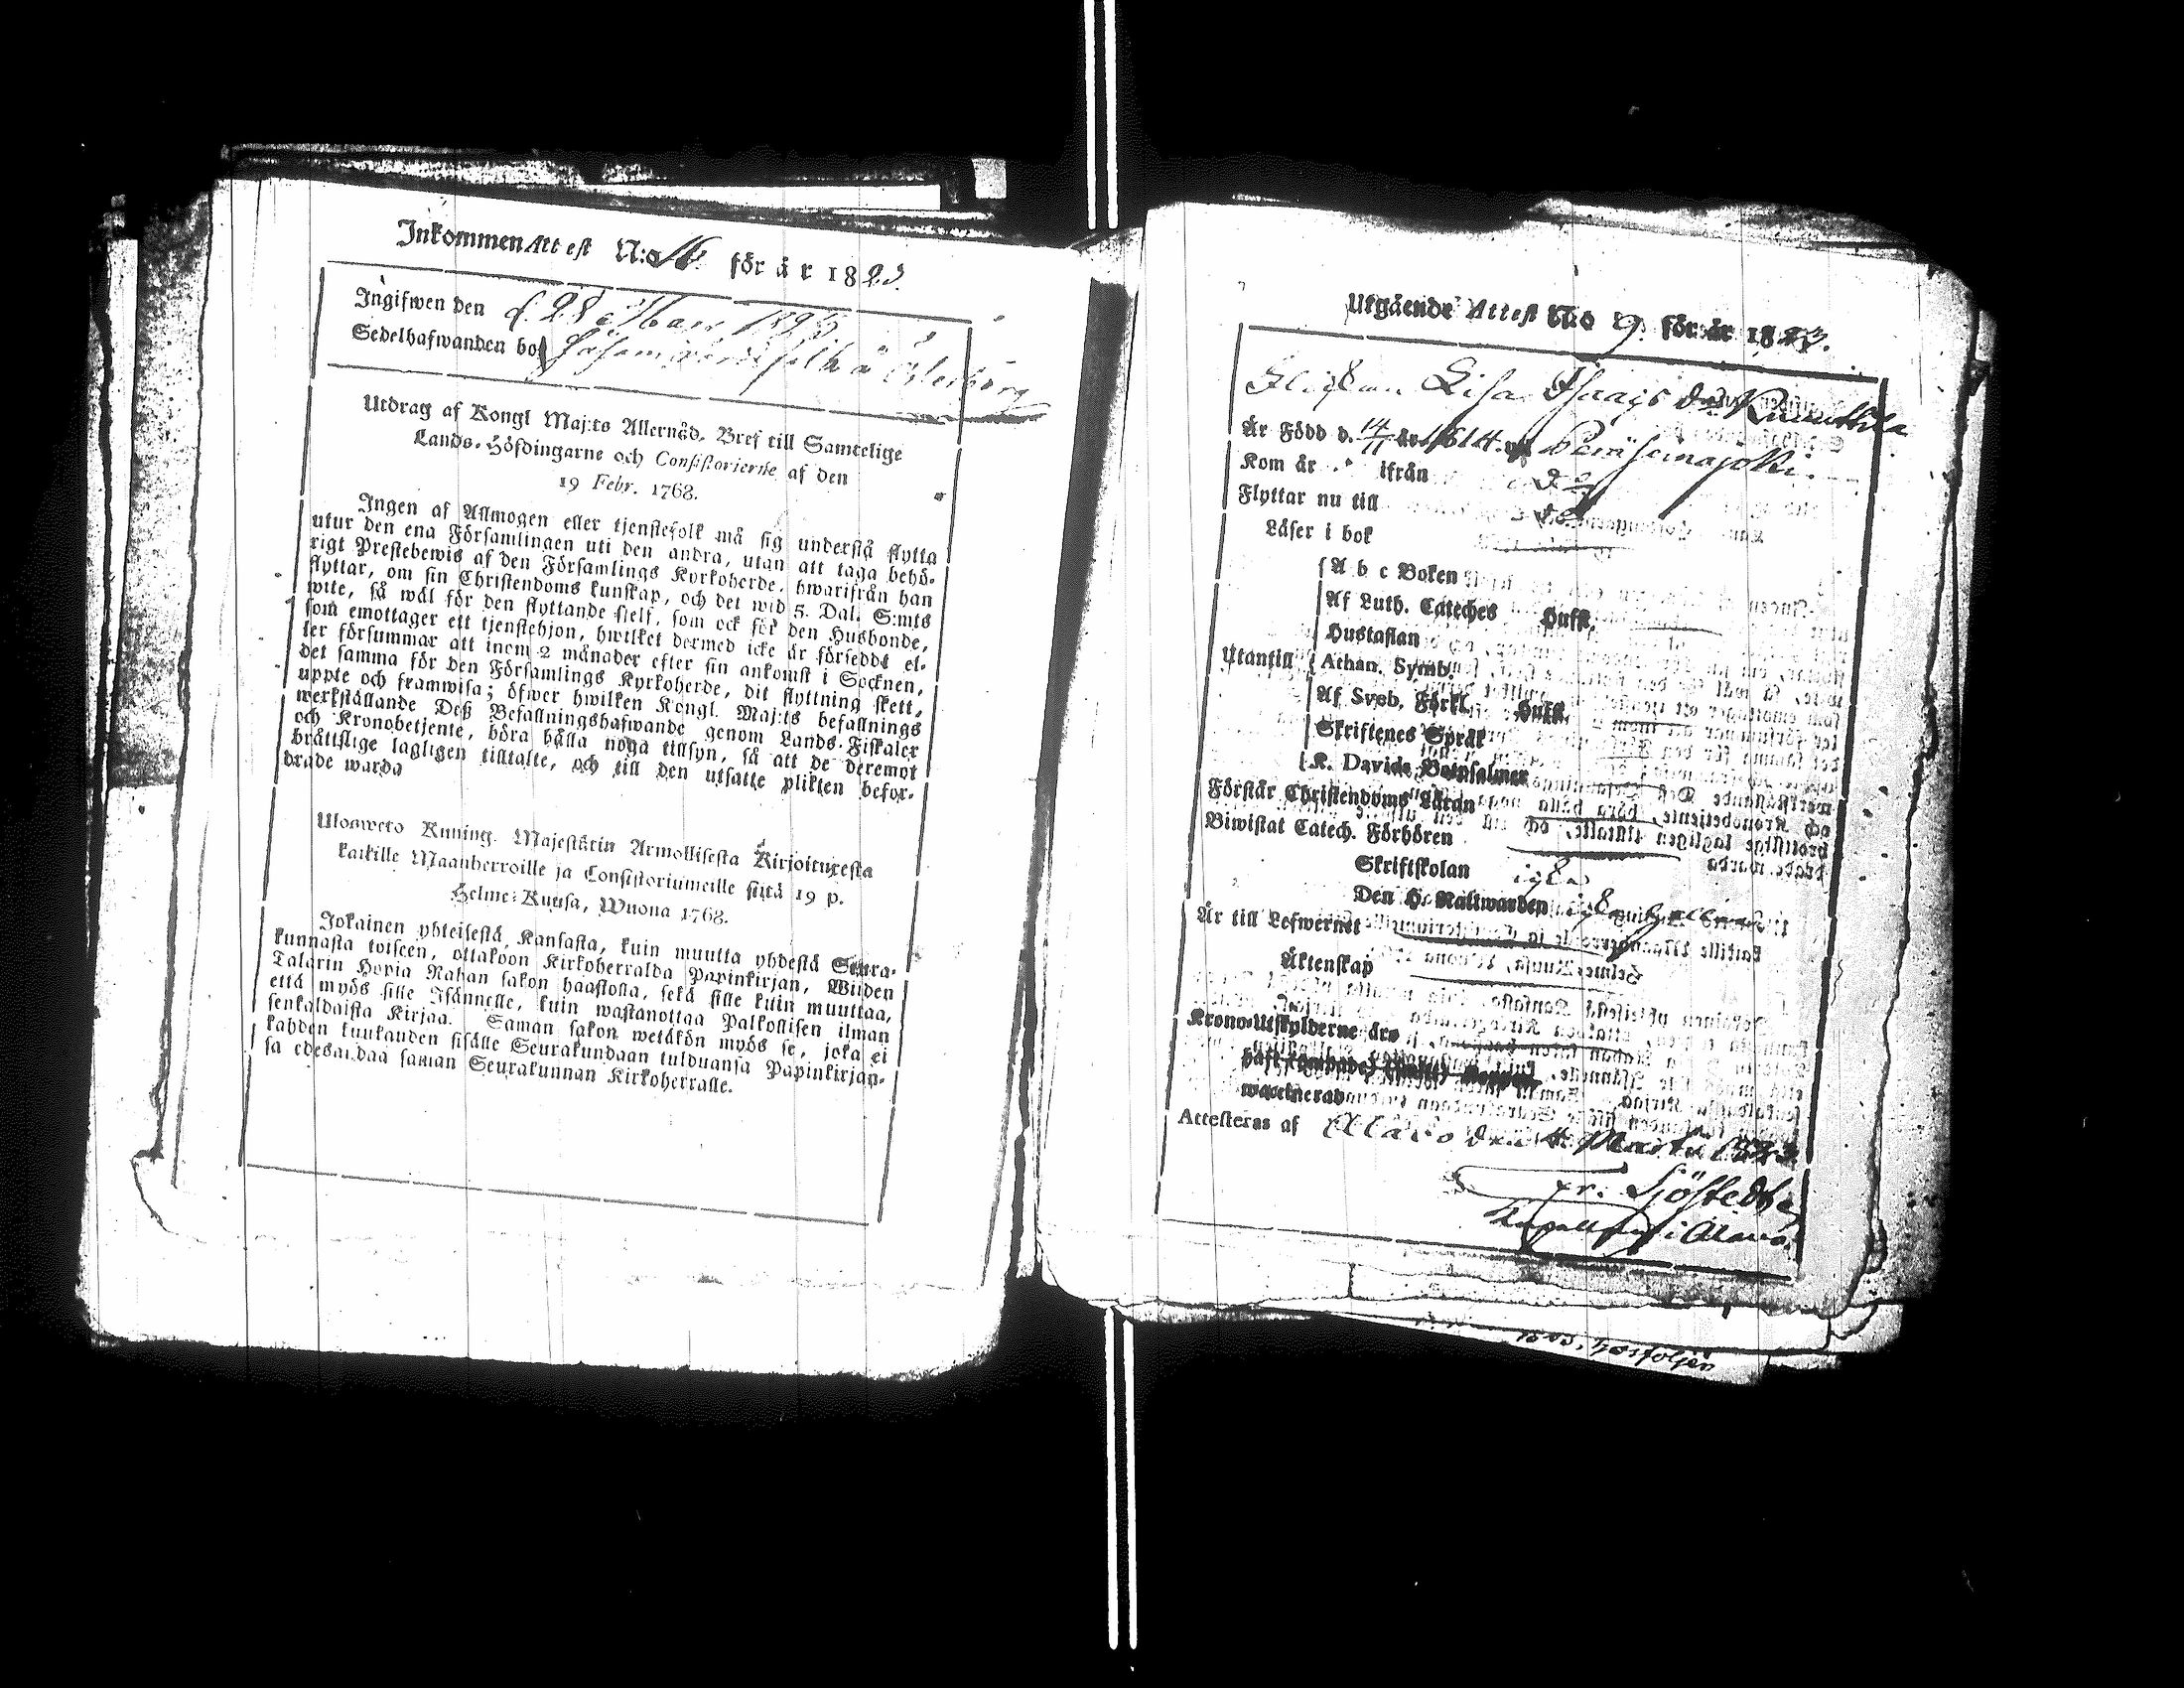 Inkommen Attest N:o 16. för år 1823.
Ingifwen den d. 28 Mars 1823
Sedelhafwanden bos
Utdrag af Kongl Maj:ts Allernåd. Bref till Samtelige
Lands-Höfdingarne och Consistorierne af den
19 Febr. 1768.
Ingen af Allmogen eller tjenstefolk må sig understå flytta
utur den ena Församlingen uti den andra, utan att taga behö-
rigt Prestebewis af den Församlings Kyrkoherde, hwarifrån han
flyttar, om sin Christendoms kunskap, och det wid 5. Dal. S:mts
wite, så wäl för den flyttande sjelf, som ock för den Husbonde,
som emottager ett tjenstehjon, hwilket dermed icke är försedde el-
ler försummar att inom 2 månader efter sin ankomst i Socknen,
det samma för den Församlings Kyrkoherde, dit flyttning skett,
uppte och framwisa; öfwer hwilken Kongl. Maj:ts befallnings
werkställande Deß Befallningshafwande genom Lands-Fiskaler
och Kronobetjente, böra hålla noga tillsyn, så att de deremot
bråttslige lagligen tilltalte, och till den utsatte plikten befor-
drade warda
Uloswero Kuning. Majestätin Armollisesta Kirjoituxesta
kaikille Maanherroille ja Consistoriumeille siitä 19 p.
Helme-Kuusa, Wuona 1768.
Jokainen yhteisestä Kansasta, kuin muutta yhdestä Seura-
kunnasta toiseen, ottakoon Kirkoherralda Papinkirjan, Wiiden
Talarin Hopia Rahan sakon haastolla, sekä sille kuin muuttaa,
että myös sille Isännelle, kuin wastanottaa Palkollisen ilman
senkaldaista Kirjaa. Saman sakon wetäkön myös se, joka ei
kahden kuukauden sisälle Seurakundaan tulduansa Papinkirjan-
sa edesandaa saman Seurakunnan Kirkoherralle.
Utgående Attest N:o 9. för år 1823.
Flickan Lisa Isaacs dr
Är Född d. 14/11 år 1814. uti
Kom år ifrån
Flyttar nu till
Läser i bok
A b c Boken
Af Luth. Cateches Hufst.
Hustaflan
Utantill Athan. Symb.
Af Sveb. Förkl. Hufst.
Skriftenes Språk
K. Davids Botpsalmer
Förstår Christendoms Läran
Biwistat Catech. Förhören
Skriftskolan
Den H. Nattwarden
Är till Lefwernet
Äktenskap
Krono-Utskylderne äro
Attesteras af Alavo den 4 Martii 1823.
Er: Sjöstedt
Kapellan i Alavo.